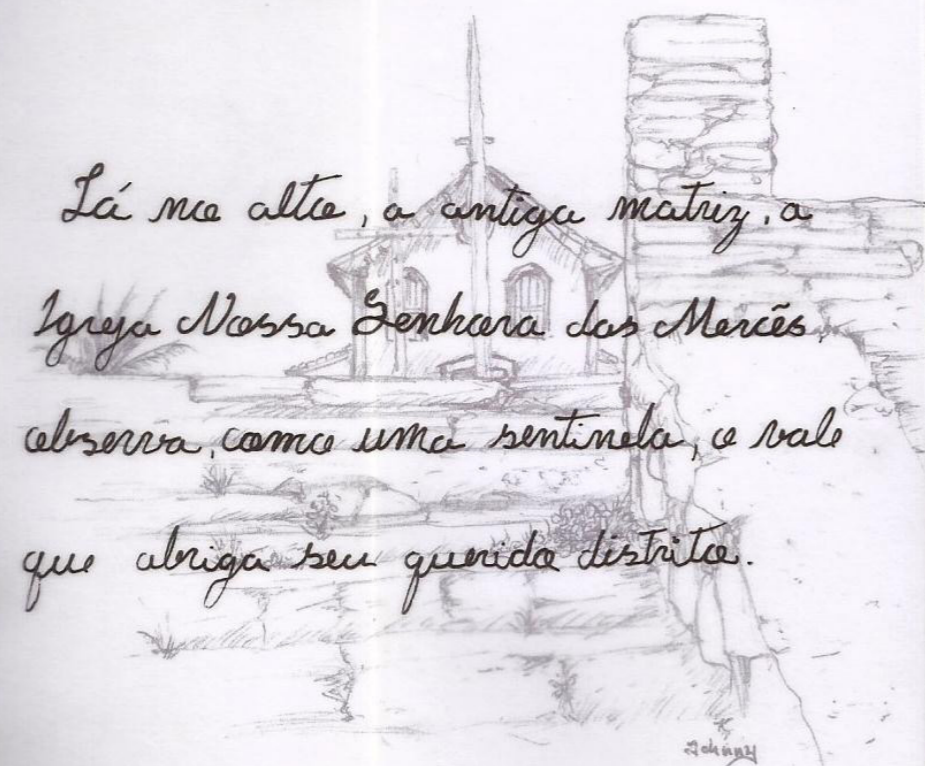 Lá no alto, a antiga matriz, a
Igreja Nossa Senhora das Mercês,
observa, como uma sentinela, o vale
que abriga seu querido distrito.
Johnny